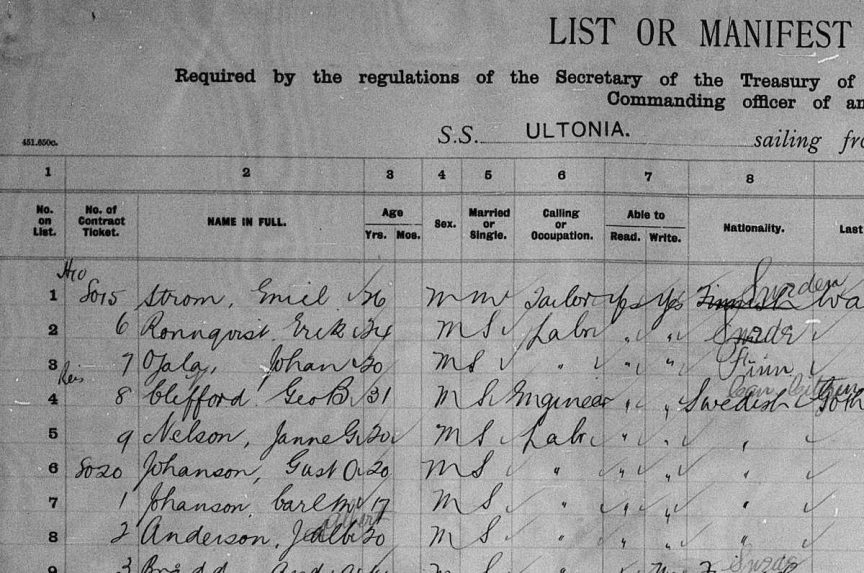 LIST OR MANIFEST
Required by the regulations of the Secretary of the Treasury of
Commanding officer of an
451.650c.
S.S. ULTONIA. sailing fro
1 2 3 4 5 6 7 8
No. on List. No. of Contract Ticket. NAME IN FULL. Age Yrs. Mos. Sex. Married or Single. Calling or Occupation. Able to Read. Write. Nationality. Last
1 8015 Strom, Emil 26 M M Tailor Yes Yes Finnish Sweden Wa
2 6 Ronnqvist, Erik 24 M S Labr " " Swede
3 7 Ojala, Johan 20 M S " " " Finn
4 8 Clifford, Geo B. 31 M S Engineer " " Swedish Goth
5 9 Nelson, Janne G. 20 M S Labr " " "
6 8020 Johanson, Gust O. 20 M S " " " "
7 1 Johanson, Carl M. 17 M S " " " "
8 2 Anderson, J. Alb. 20 M S " " " "
9 3 M S Swede